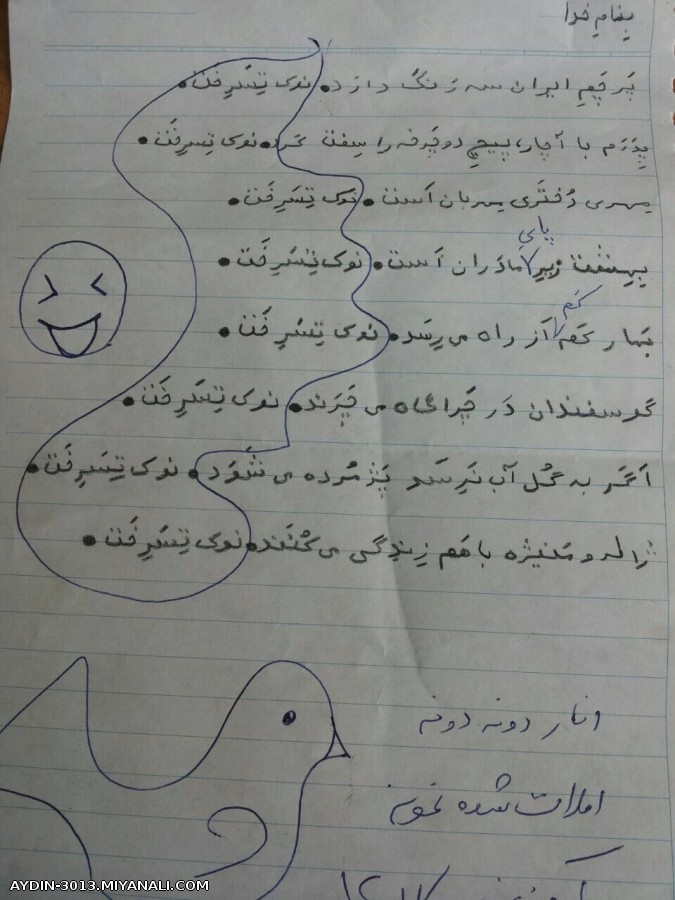 بنام خدا
پَرچَمِ ایران سه رَنگ دارَد. نوک تِسَرِخَت.
پِدَرَم با آچار، پیچِ دوچَرخه را سِفت کَرد. نوک تِسَرِخَت.
پری دُختَری مِهربان اَست. نوک تِسَرِخَت.
بِهِشت زیرِ پایِ مادَران اَست. نوک تِسَرِخَت.
بَهار کَم کَم اَز راه می رِسَد. نوک تِسَرِخَت.
گوسفَندان دَر چَراگاه می چَرَند. نوک تِسَرِخَت.
اَگَر به گُل آب نَرِسَد پَژمُرده می شَوَد. نوک تِسَرِخَت.
ژاله و مَنیژه با هَم زِندِگی می کُنَند. نوک تِسَرِخَت.
انار دونه دونه
املات شده نمونه
AYDIN-3013.MIYANALI.COM